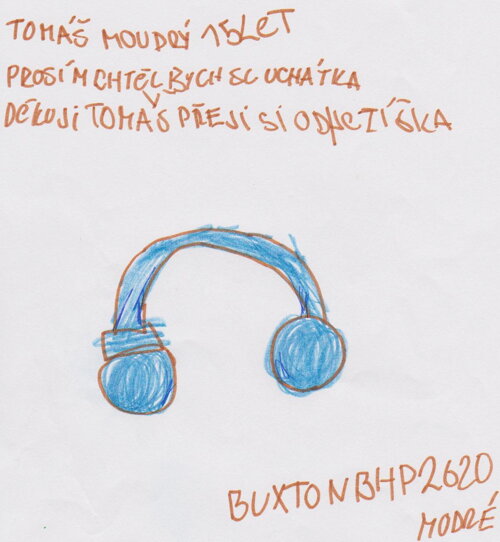 TOMÁŠ MOUDRÝ 15LET
PROSÍM CHTĚL BYCH SLUCHÁTKA
DĚKUJI TOMÁŠ PŘEJI SI OD JEŽÍŠKA
BUXTON BHP2620
MODRÉ